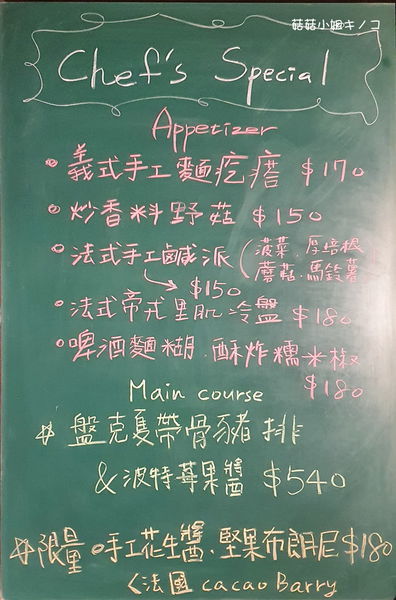 菇菇小姐キノコ
Chef's Special
Appetizer
義式手工麵疙瘩 $170
炒香料野菇 $150
法式手工鹹派 (菠菜.厚培根
蘑菇.馬鈴薯
$150
法式帝戎里肌冷盤 $180
啤酒麵糊.酥炸糯米椒
$180
Main course
盤克夏帶骨豬排
&波特莓果醬 $540
限量 手工花生醬.堅果布朗尼$180
法國 cacao Barry